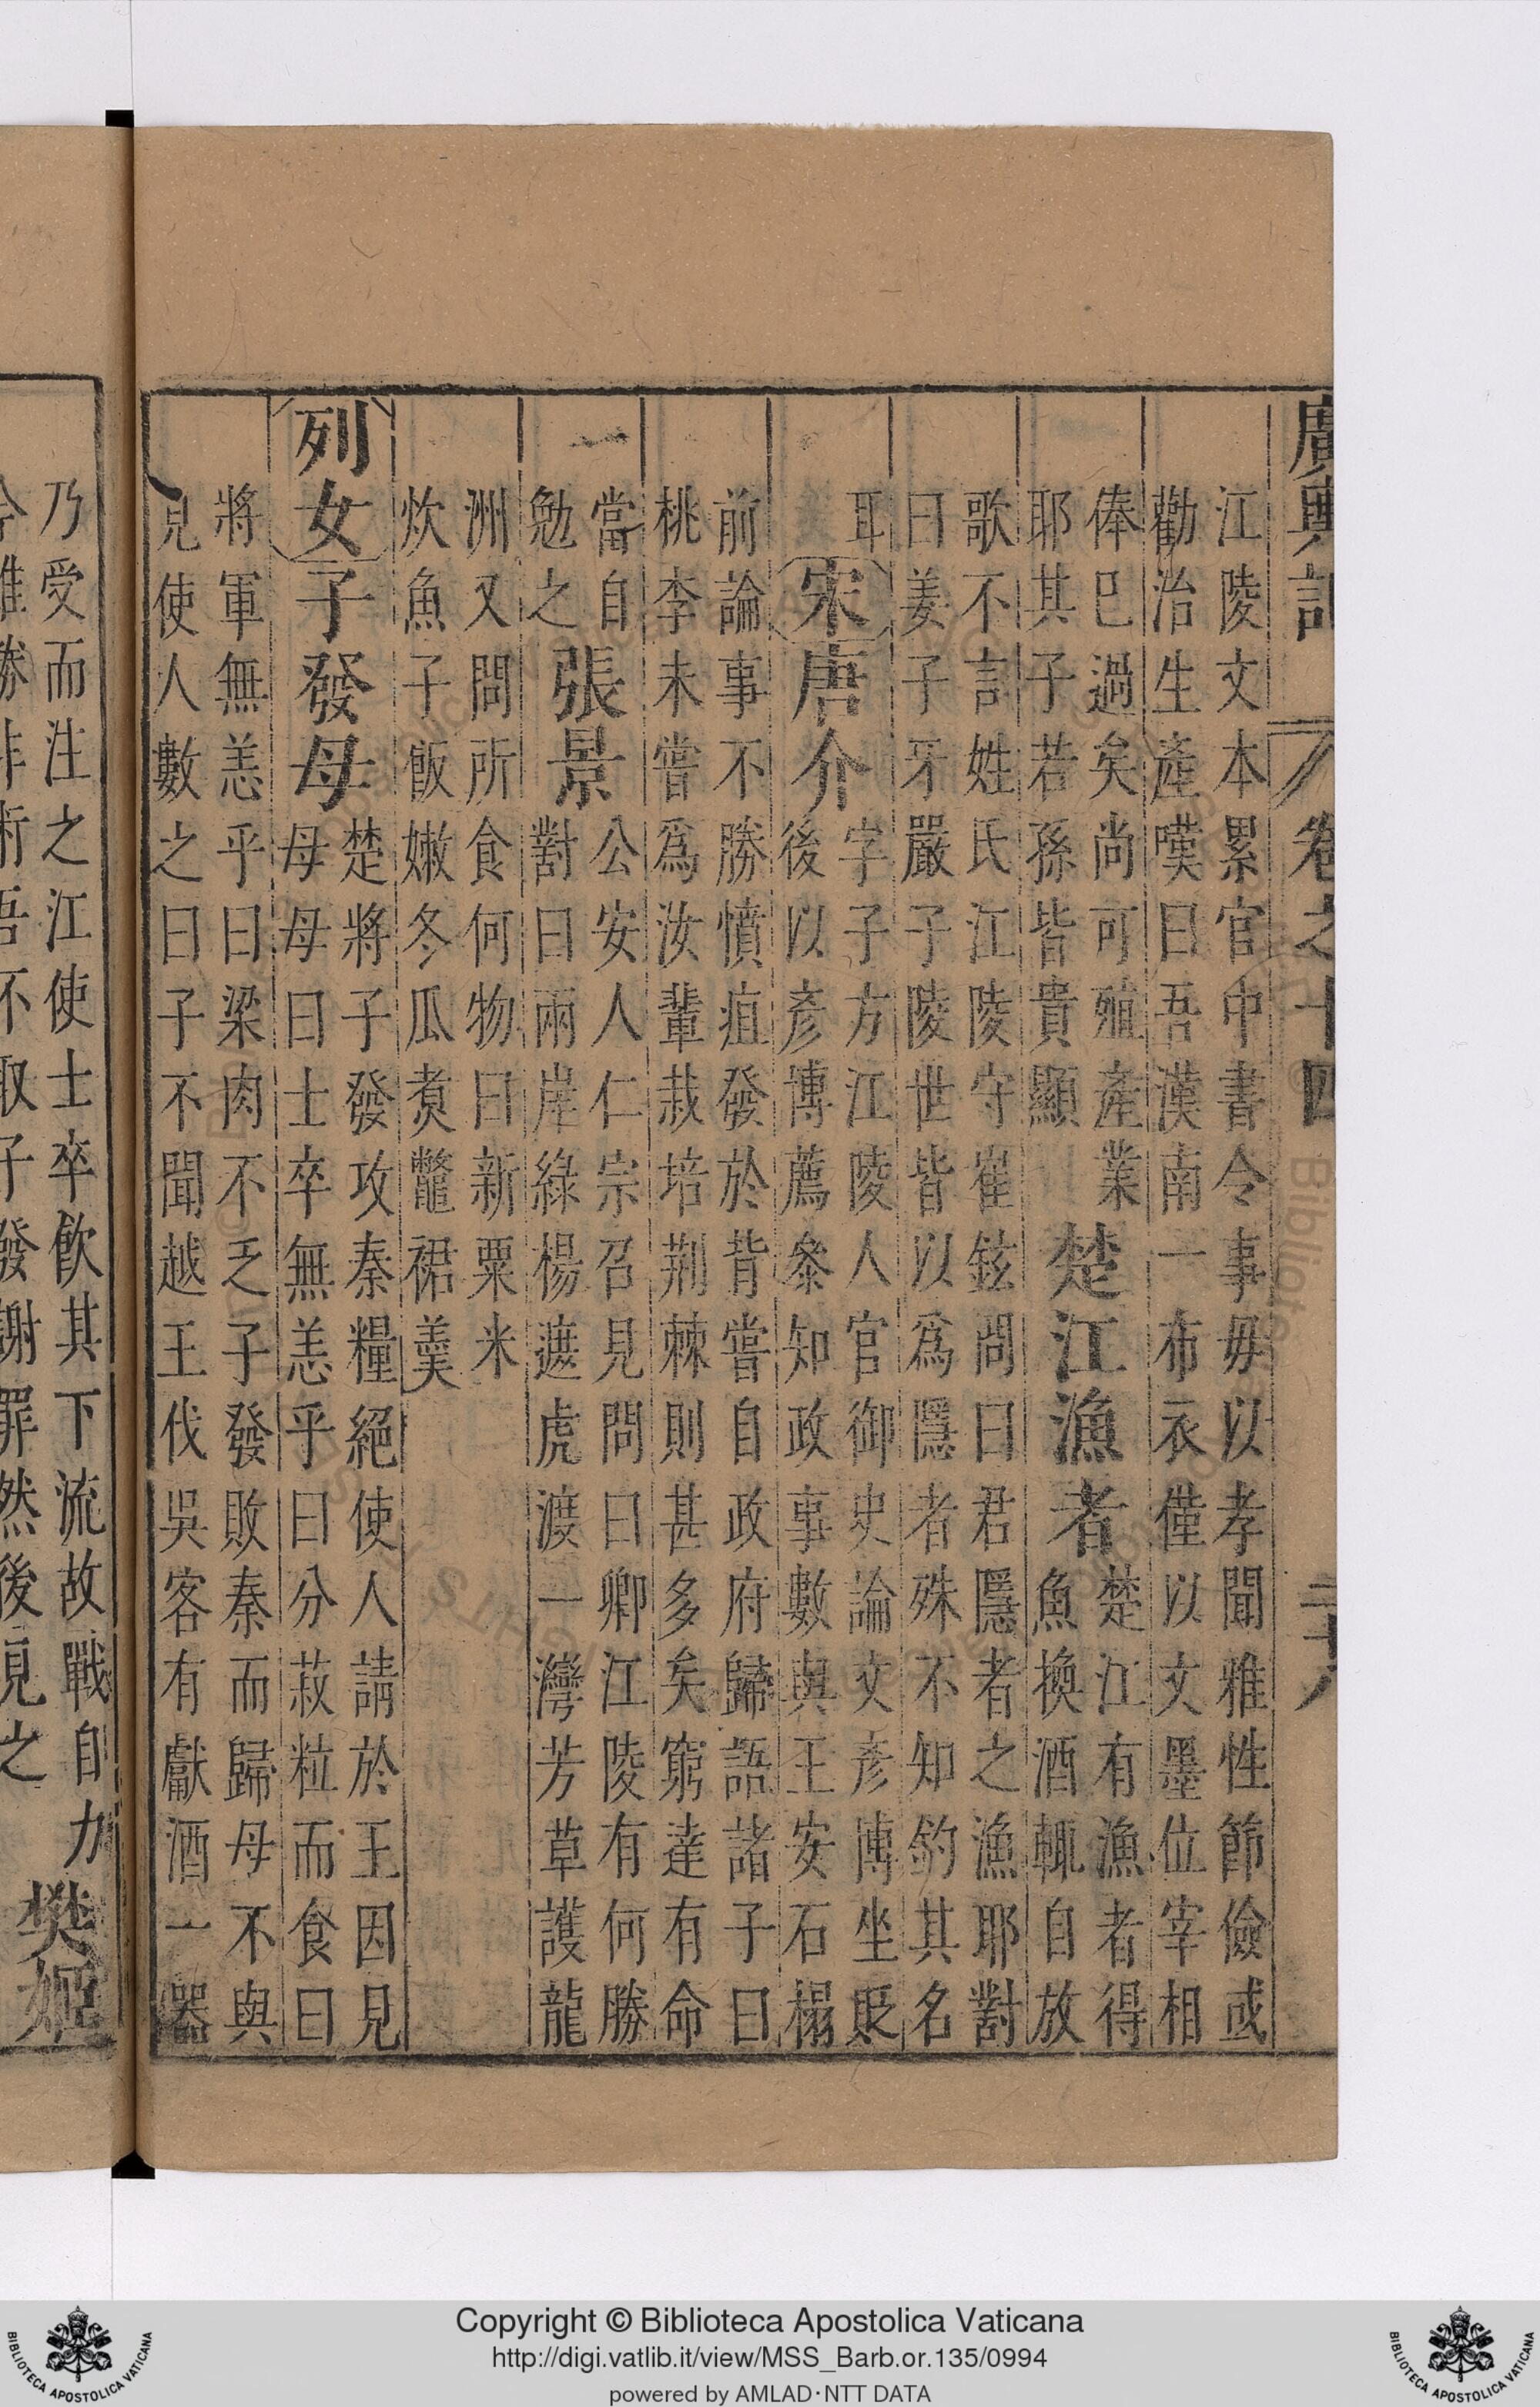 廣輿記 卷之十四 三十八
江陵文本累官中書令事毋以孝聞雅性節儉或
勸治生產嘆曰吾漢南一布衣僅以文墨位宰相
俸巳過矣尚可殖產業
耶其子若孫皆貴顯
楚江漁者
楚江有漁者得
魚換酒輒自放
歌不言姓氏江陵守崔鉉問曰君隱者之漁耶對
曰姜子牙嚴子陵世皆以為隱者殊不知釣其名
耳
宋
唐介
字子方江陵人官御史論文彥博坐貶
後以彥博薦叅知政事數與王安石榻
前論事不勝憤疽發於背嘗自政府歸語諸子曰
桃李未嘗爲汝輩栽培荆棘則甚多矣窮達有命
當自
勉之
張景
公安人仁宗召見問曰卿江陵有何勝
對曰兩岸綠楊遮虎渡一灣芳草護龍
洲又問所食何物曰新粟米
炊魚子飯嫩冬瓜煑鼈裙羹
列女
子發母
楚將子發攻秦糧絕使人請於王因見
母母曰士卒無恙乎曰分菽粒而食曰
將軍無恙乎曰梁肉不乏子發敗秦而歸母不與
見使人數之曰子不聞越王伐吳客有獻酒一器
乃受而注之江使士卒飲其下流故戰自力
今雖勝非術吾不取子發謝罪然後見之
樊姬
Copyright © Biblioteca Apostolica Vaticana
http://digi.vatlib.it/view/MSS_Barb.or.135/0994
powered by AMLAD·NTT DATA
BIBLIOTECA APOSTOLICA VATICANA
BIBLIOTECA APOSTOLICA VATICANA